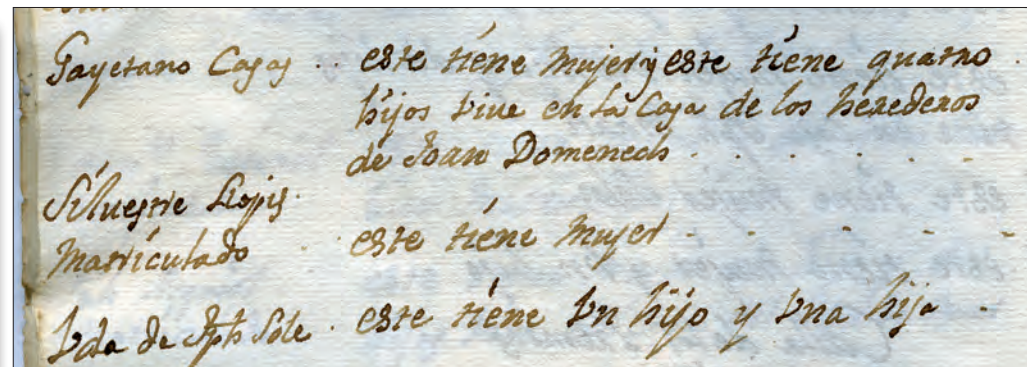 Gayetano Casas .. este tiene mujer y este tiene quatro .
hijos vive en la Casa de los herederos
de Joan Domenech . . . . . .
Silvestre Llopis.
Matriculado .. este tiene mujer . . . . . .
Vda de Jph Sole . este tiene Vn hijo y Vna hija .